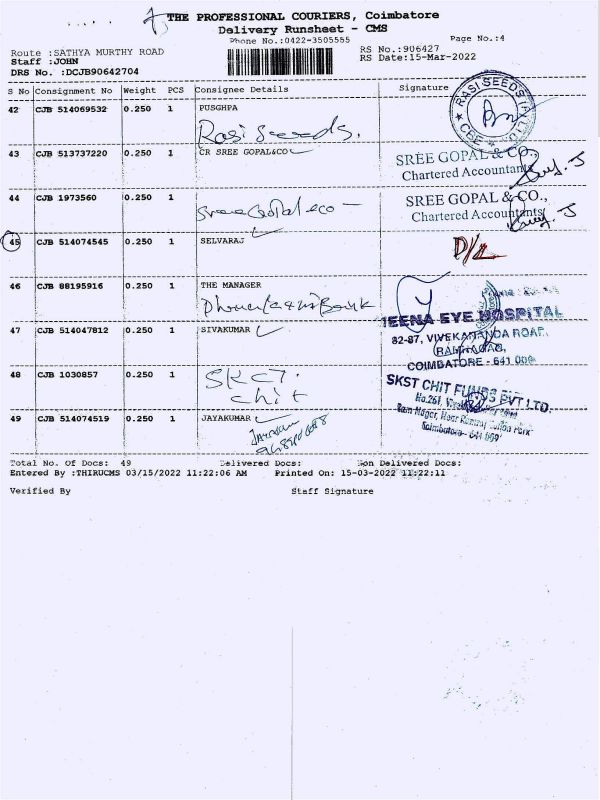 THE PROFESSIONAL COURIERS, Coimbatore
Delivery Runsheet - CMS
Phone No.:0422-3505555 Page No.:4
Route :SATHYA MURTHY ROAD RS No.:906427
Staff :JOHN RS Date:15-Mar-2022
DRS No. :DCJB90642704
S No Consignment No Weight PCS Consignee Details Signature
42 CJB 514069532 0.250 1 PUSGHPA
Rasi Seeds.
RASI SEEDS (P) LTD CBE
43 CJB 513737220 0.250 1 CR SREE GOPAL&CO
SREE GOPAL & CO.,
Chartered Accountants
44 CJB 1973560 0.250 1
Sree Gopal & co
SREE GOPAL & CO.,
Chartered Accountants
45 CJB 514074545 0.250 1 SELVARAJ D/L
46 CJB 88195916 0.250 1 THE MANAGER
Bank
47 CJB 514047812 0.250 1 SIVAKUMAR
EYE HOSPITAL
82-87, VIVEKANANDA ROAD,
RAMNAGAR,
COIMBATORE - 641 009
48 CJB 1030857 0.250 1
SKCT.
chit
SKST CHIT FUNDS PVT LTD.
No.261,
Ram Nagar, Near Park
Coimbatore - 641 009
49 CJB 514074519 0.250 1 JAYAKUMAR
Total No. Of Docs: 49 Delivered Docs: Non Delivered Docs:
Entered By :THIRUCMS 03/15/2022 11:22:06 AM Printed On: 15-03-2022 11:22:11
Verified By Staff Signature